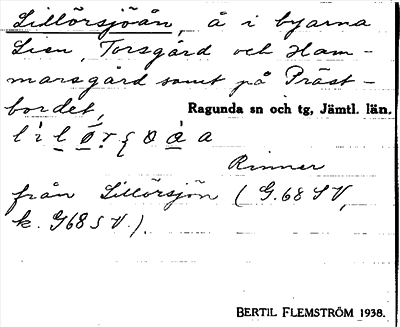 Lillörsjöån, å i byarna
Lien, Torsgård och Ham-
marsgård samt på Präst-
bordet,
Ragunda sn och tg, Jämtl. län.
Rinner
från Lillörsjön (G.68 SV,
k. G68 SV.).
BERTIL FLEMSTRÖM 1938.